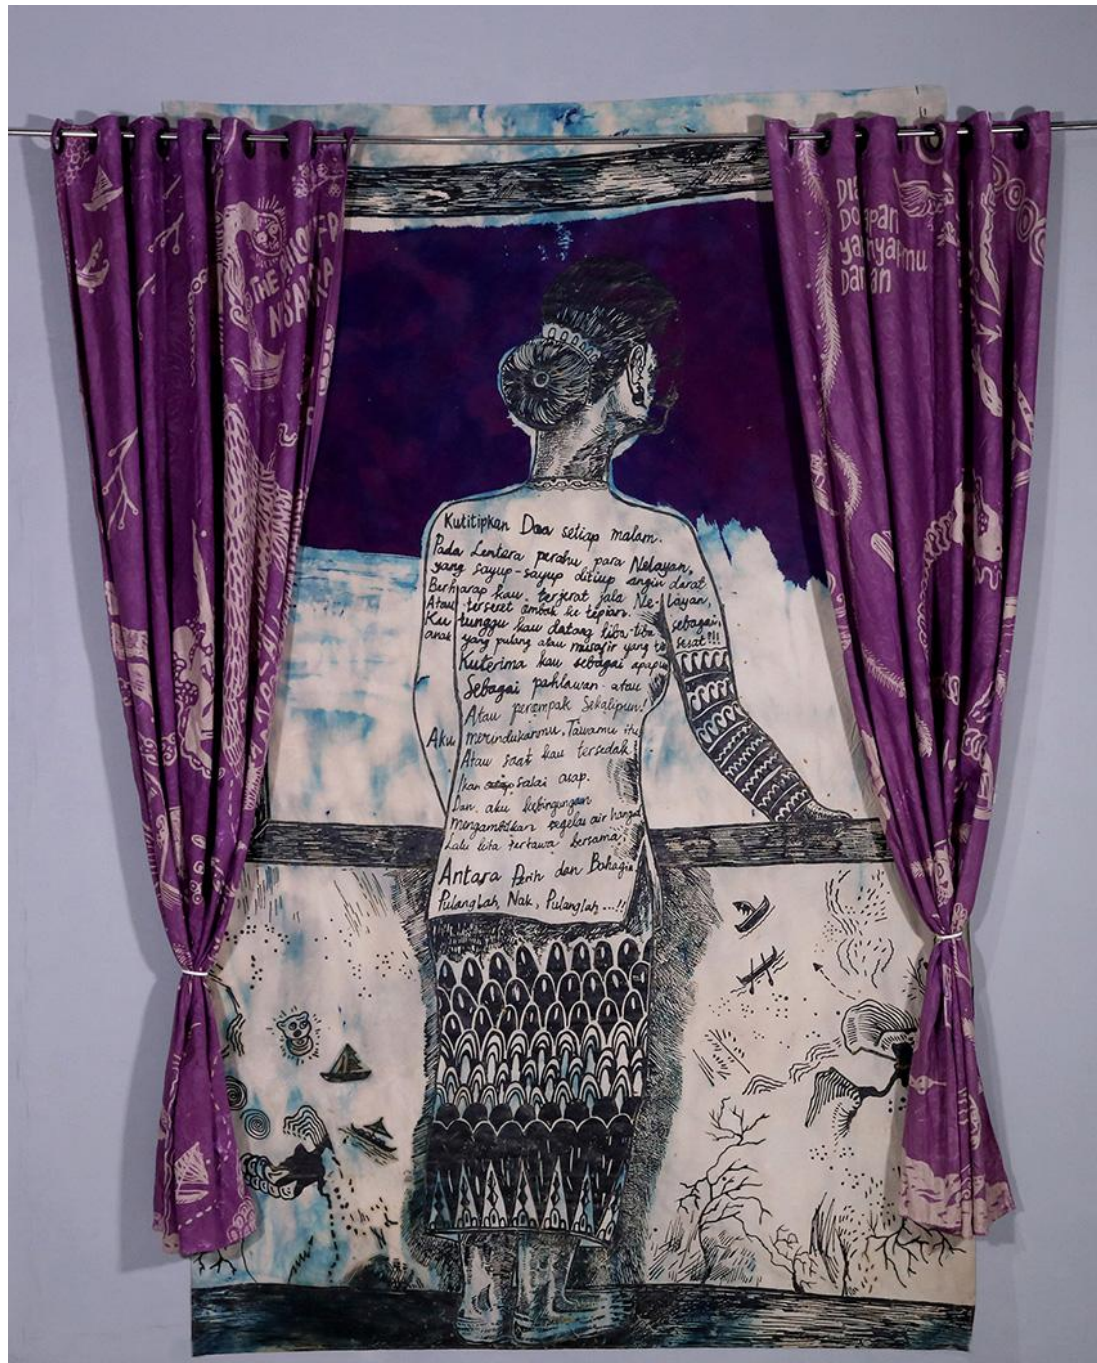 Kutitipkan Doa setiap malam.
Pada Lentera perahu para Nelayan,
yang sayup-sayup ditiup angin darat
Berharap kau terjerat jala Ne-layan,
Atau terseret ombak ke tepian.
Ku tunggu kau datang tiba-tiba sebagai,
anak yang pulang atau musafir yang sesat!!!
Kuterima kau sebagai apapun
Sebagai pahlawan atau
Atau perompak Sekalipun!
Aku merindukanmu, Tawamu itu
Atau saat kau tersedak
Ikan salai asap.
Dan aku kebingungan
mengambilkan segelas air hangat
Lalu kita tertawa bersama,
Antara Perih dan Bahagia
Pulanglah Nak, Pulanglah...!!
THE